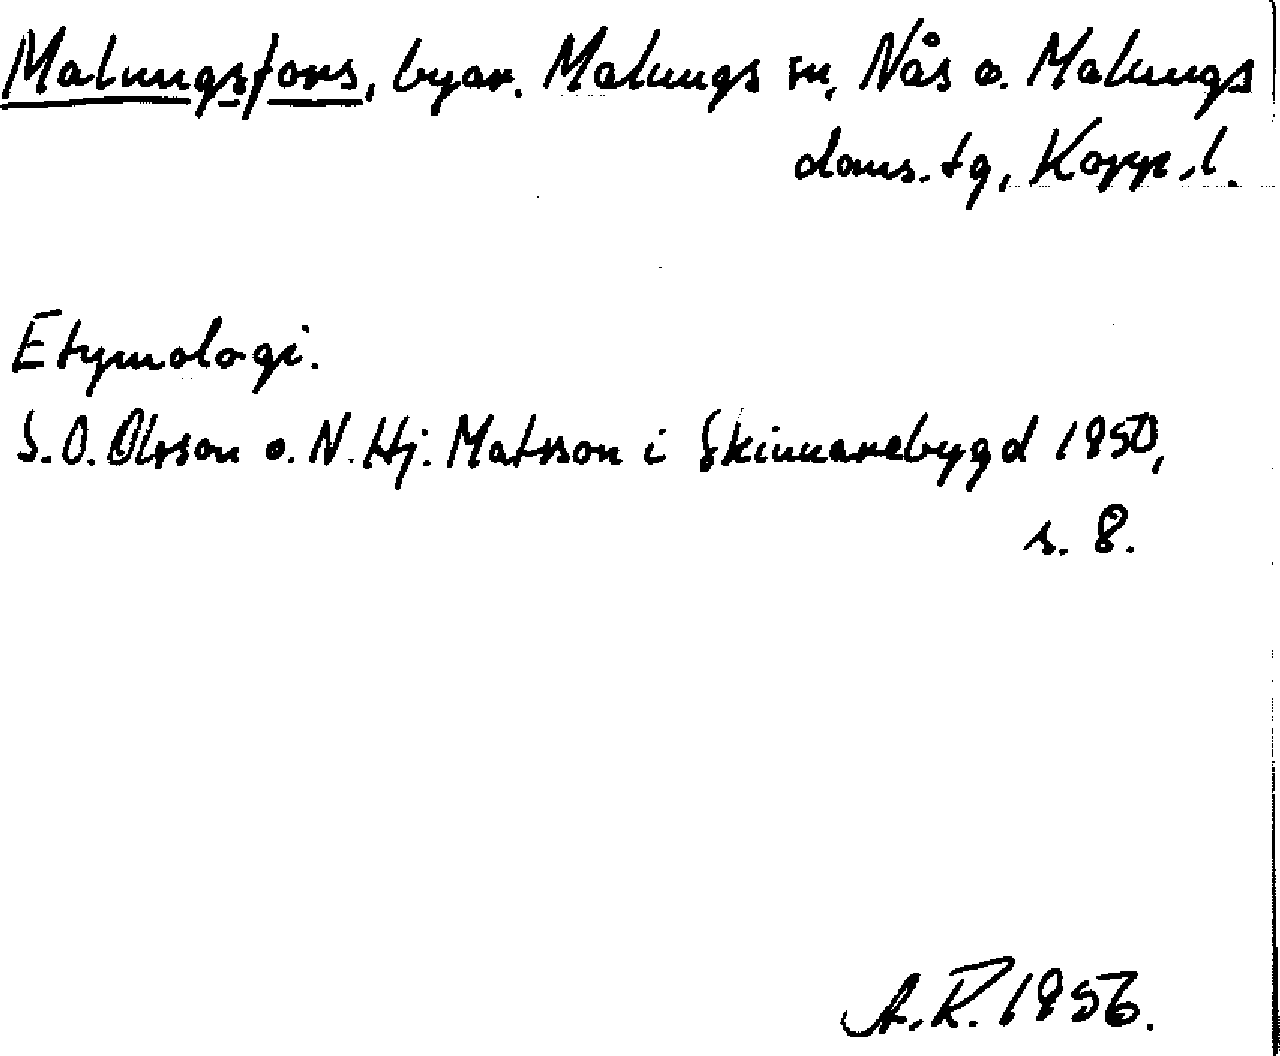 Malungsfors, byar. Malungs sn, Nås o. Malungs
doms. tg, Kopp. l.
Etymologi.
S. O. Olsson o. N. Hj. Matsson i Skinnarebygd 1950,
s. 8.
A. R. 1956.